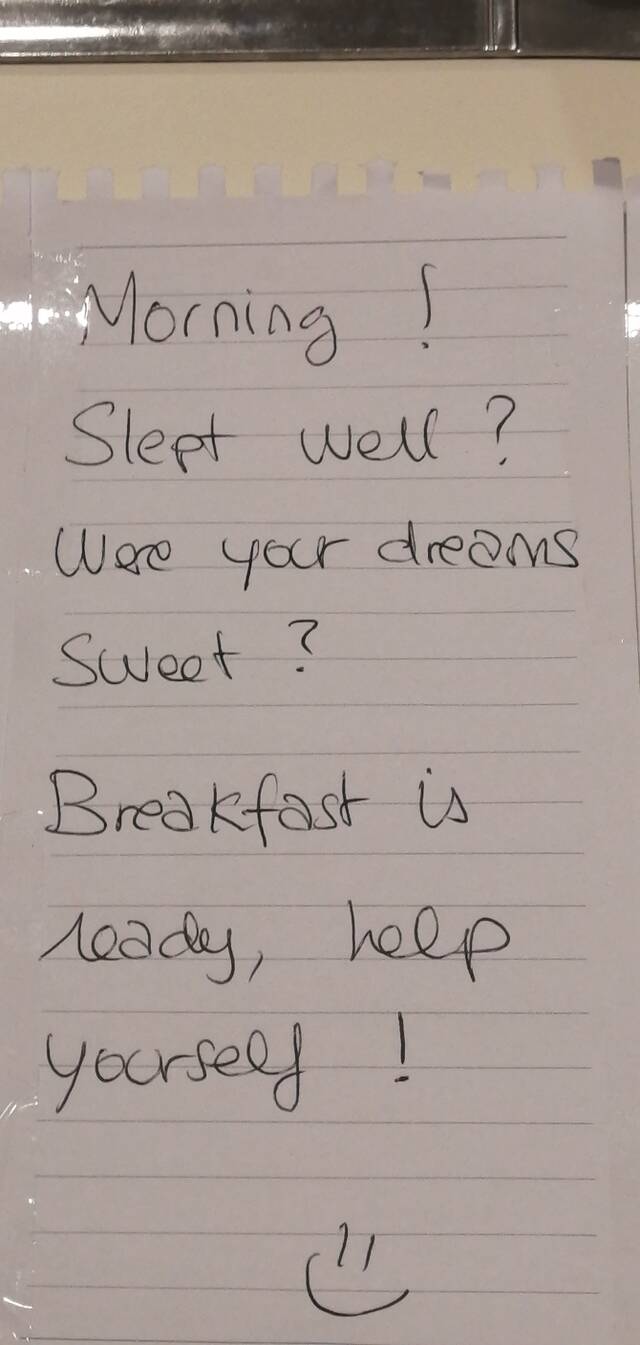 Morning !
Slept well ?
Were your dreams
sweet ?
Breakfast is
ready, help
yourself !